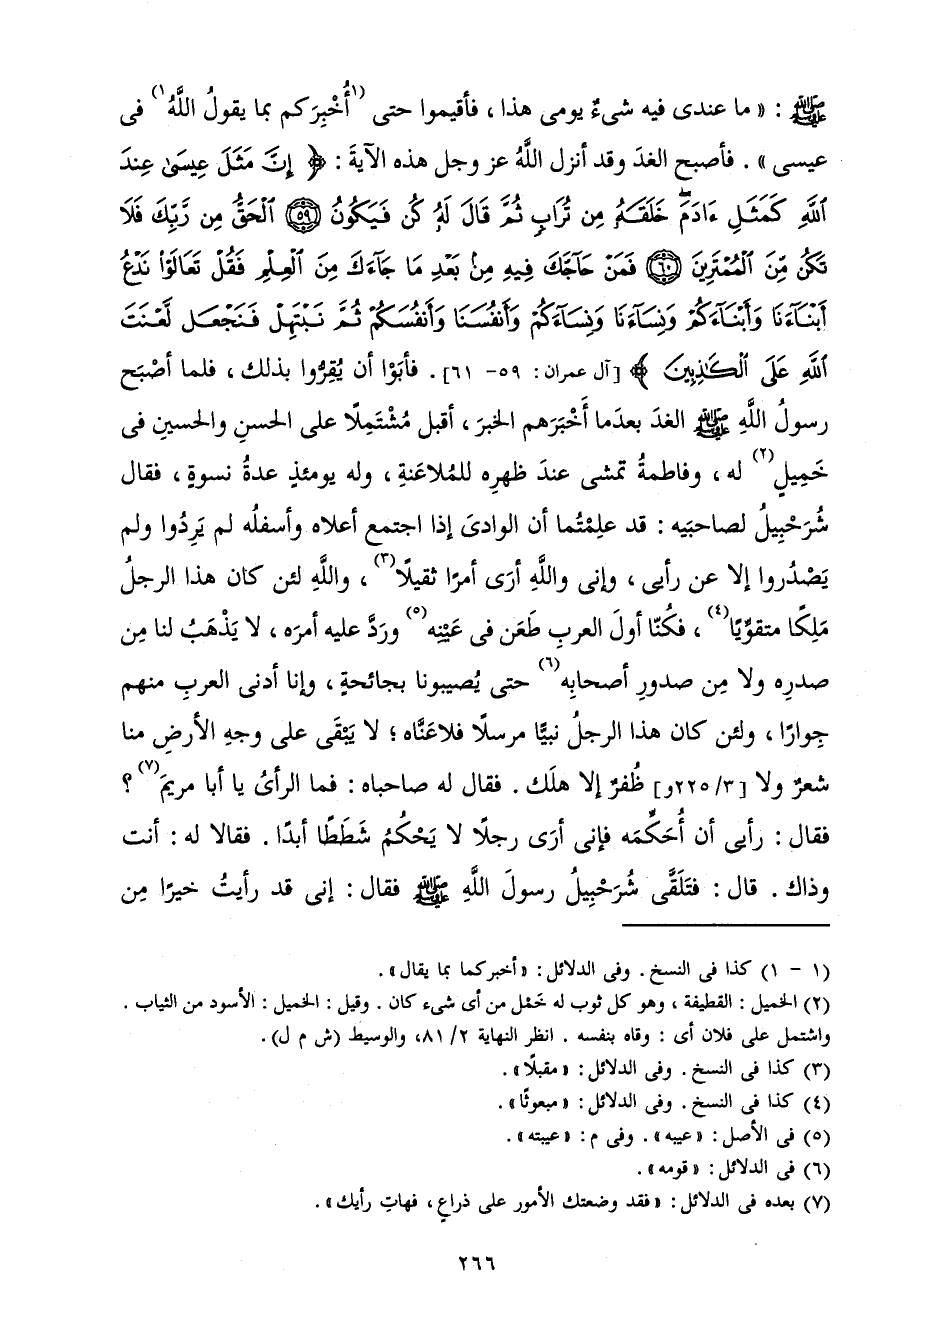 ﷺ : « ما عندى فيه شىءٌ يومى هذا ، فأقيموا حتى (١أُخْبِرَكم بما يقولُ اللَّهُ١) فى
عيسى » . فأصبح الغدَ وقد أنزل اللَّهُ عز وجل هذه الآيةَ : ﴿ إِنَّ مَثَلَ عِيسَىٰ عِندَ
ٱللَّهِ كَمَثَلِ ءَادَمَۖ خَلَقَهُۥ مِن تُرَابٍ ثُمَّ قَالَ لَهُۥ كُن فَيَكُونُ ۝٥٩ ٱلْحَقُّ مِن رَّبِّكَ فَلَا
تَكُن مِّنَ ٱلْمُمْتَرِينَ ۝٦٠ فَمَنْ حَآجَّكَ فِيهِ مِنۢ بَعْدِ مَا جَآءَكَ مِنَ ٱلْعِلْمِ فَقُلْ تَعَالَوْا۟ نَدْعُ
أَبْنَآءَنَا وَأَبْنَآءَكُمْ وَنِسَآءَنَا وَنِسَآءَكُمْ وَأَنفُسَنَا وَأَنفُسَكُمْ ثُمَّ نَبْتَهِلْ فَنَجْعَل لَّعْنَتَ
ٱللَّهِ عَلَى ٱلْكَٰذِبِينَ ﴾ [آل عمران: ٥٩- ٦١] . فأبَوْا أن يُقِرُّوا بذلك ، فلما أصْبَح
رسولُ اللَّهِ ﷺ الغدَ بعدَما أَخْبَرَهم الخبرَ ، أقبل مُشْتَمِلًا على الحسنِ والحسينِ فى
خَمِيلٍ(٢) له ، وفاطمةُ تمشى عندَ ظهرِه للمُلاعَنةِ ، وله يومئذٍ عدةُ نسوةٍ ، فقال
شُرَحْبِيلُ لصاحبَيه : قد علِمْتُما أن الوادىَ إذا اجتمع أعلاه وأسفلُه لم يَرِدُوا ولم
يَصْدُروا إلا عن رأيى ، وإنى واللَّهِ أرَى أمرًا ثقيلًا(٣) ، واللَّهِ لئن كان هذا الرجلُ
مَلِكًا متقوِّيًا(٤) ، فكُنّا أولَ العربِ طَعَن فى عَيْنِه(٥) ورَدَّ عليه أمرَه ، لا يَذْهَبُ لنا مِن
صدرِه ولا مِن صدورِ أصحابِه(٦) حتى يُصيبونا بجائحةٍ ، وإنا أدنى العربِ منهم
جِوارًا ، ولئن كان هذا الرجلُ نبيًّا مرسلًا فلاعَنَّاه ؛ لا يَبْقَى على وجهِ الأرضِ منا
شعرٌ ولا [٣/ ٢٢٥و] ظُفرٌ إلا هلَك . فقال له صاحباه : فما الرأىُ يا أبا مريمَ(٧) ؟
فقال : رأيى أن أُحَكِّمَه فإنى أرَى رجلًا لا يَحْكُمُ شَطَطًا أبدًا . فقالا له : أنت
وذاك . قال : فتَلَقَّى شُرَحْبِيلُ رسولَ اللَّهِ ﷺ فقال : إنى قد رأيتُ خيرًا مِن
(١ - ١) كذا فى النسخ . وفى الدلائل : «أخبركما بما يقال» .
(٢) الخميل : القطيفة ، وهو كل ثوب له خَمْل من أى شىء كان . وقيل : الخميل : الأسود من الثياب .
واشتمل على فلان أى : وقاه بنفسه . انظر النهاية ٢/ ٨١، والوسيط (ش م ل) .
(٣) كذا فى النسخ . وفى الدلائل : «مقبلًا» .
(٤) كذا فى النسخ . وفى الدلائل : «مبعوثًا» .
(٥) فى الأصل : «عيبه» . وفى م : «عيبته» .
(٦) فى الدلائل : «قومه» .
(٧) بعده فى الدلائل : «فقد وضعتك الأمور على ذراعٍ ، فهاتِ رأيك» .
٢٦٦